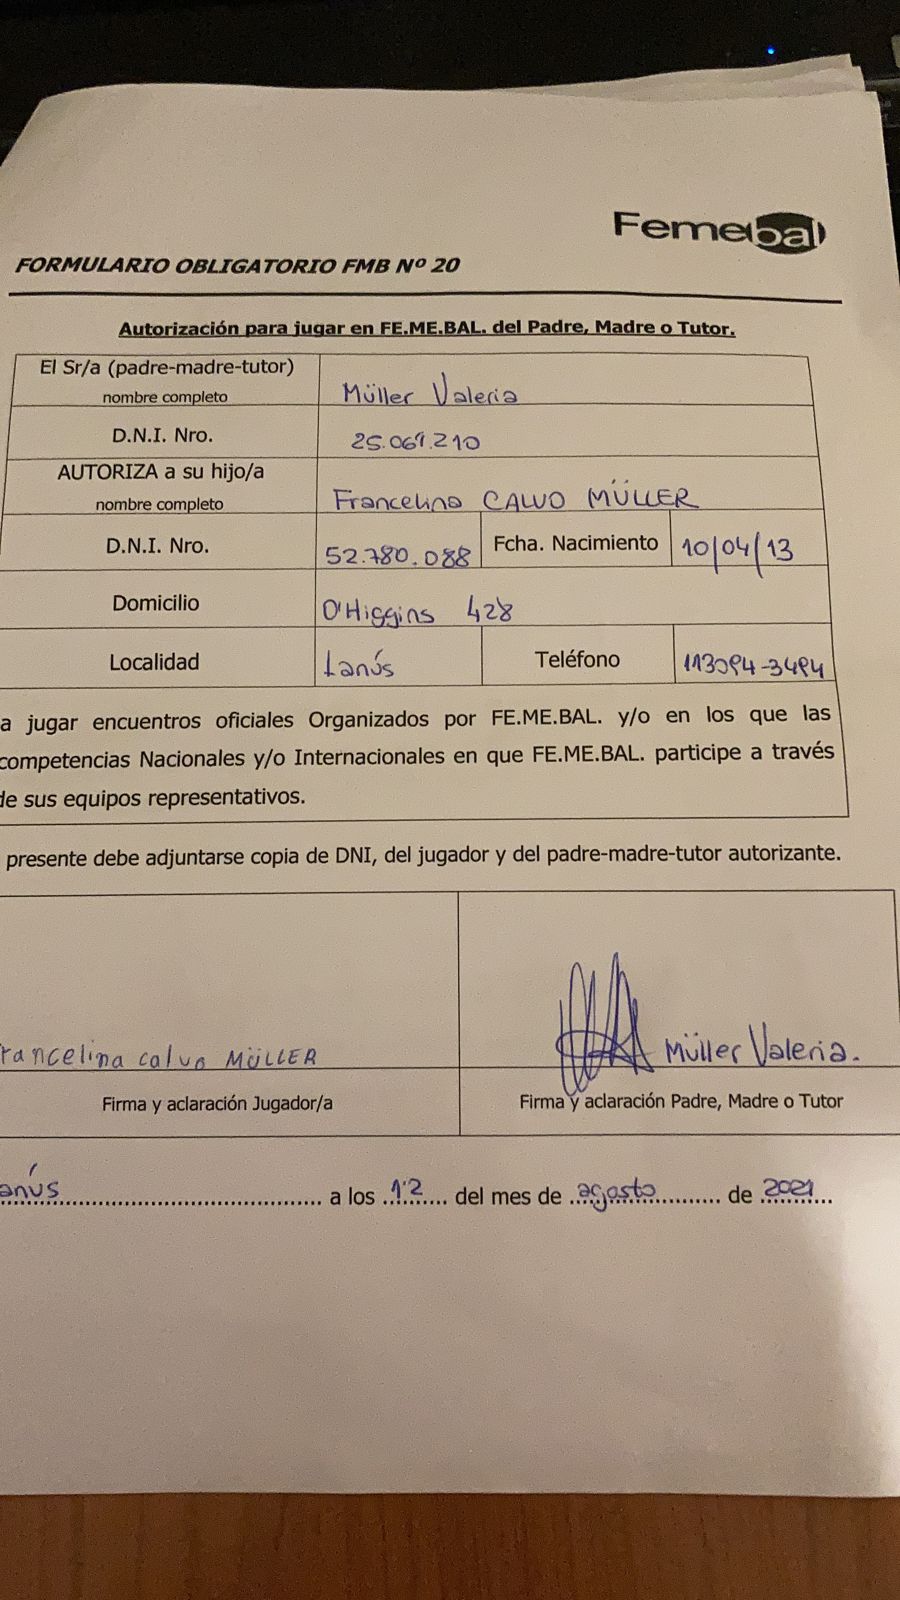 Femebal
FORMULARIO OBLIGATORIO FMB Nº 20
Autorización para jugar en FE.ME.BAL. del Padre, Madre o Tutor.
El Sr/a (padre-madre-tutor)
nombre completo
Müller Valeria
D.N.I. Nro.
25.061.210
AUTORIZA a su hijo/a
nombre completo
Francelina CALVO MÜLLER
D.N.I. Nro.
52.780.088
Fcha. Nacimiento
10/04/13
Domicilio
O'Higgins 428
Localidad
Lanús
Teléfono
113094-3494
a jugar encuentros oficiales Organizados por FE.ME.BAL. y/o en los que las
competencias Nacionales y/o Internacionales en que FE.ME.BAL. participe a través
de sus equipos representativos.
presente debe adjuntarse copia de DNI, del jugador y del padre-madre-tutor autorizante.
rancelina calvo MÜLLER
Müller Valeria.
Firma y aclaración Jugador/a
Firma y aclaración Padre, Madre o Tutor
anús a los 12 del mes de agosto de 2021